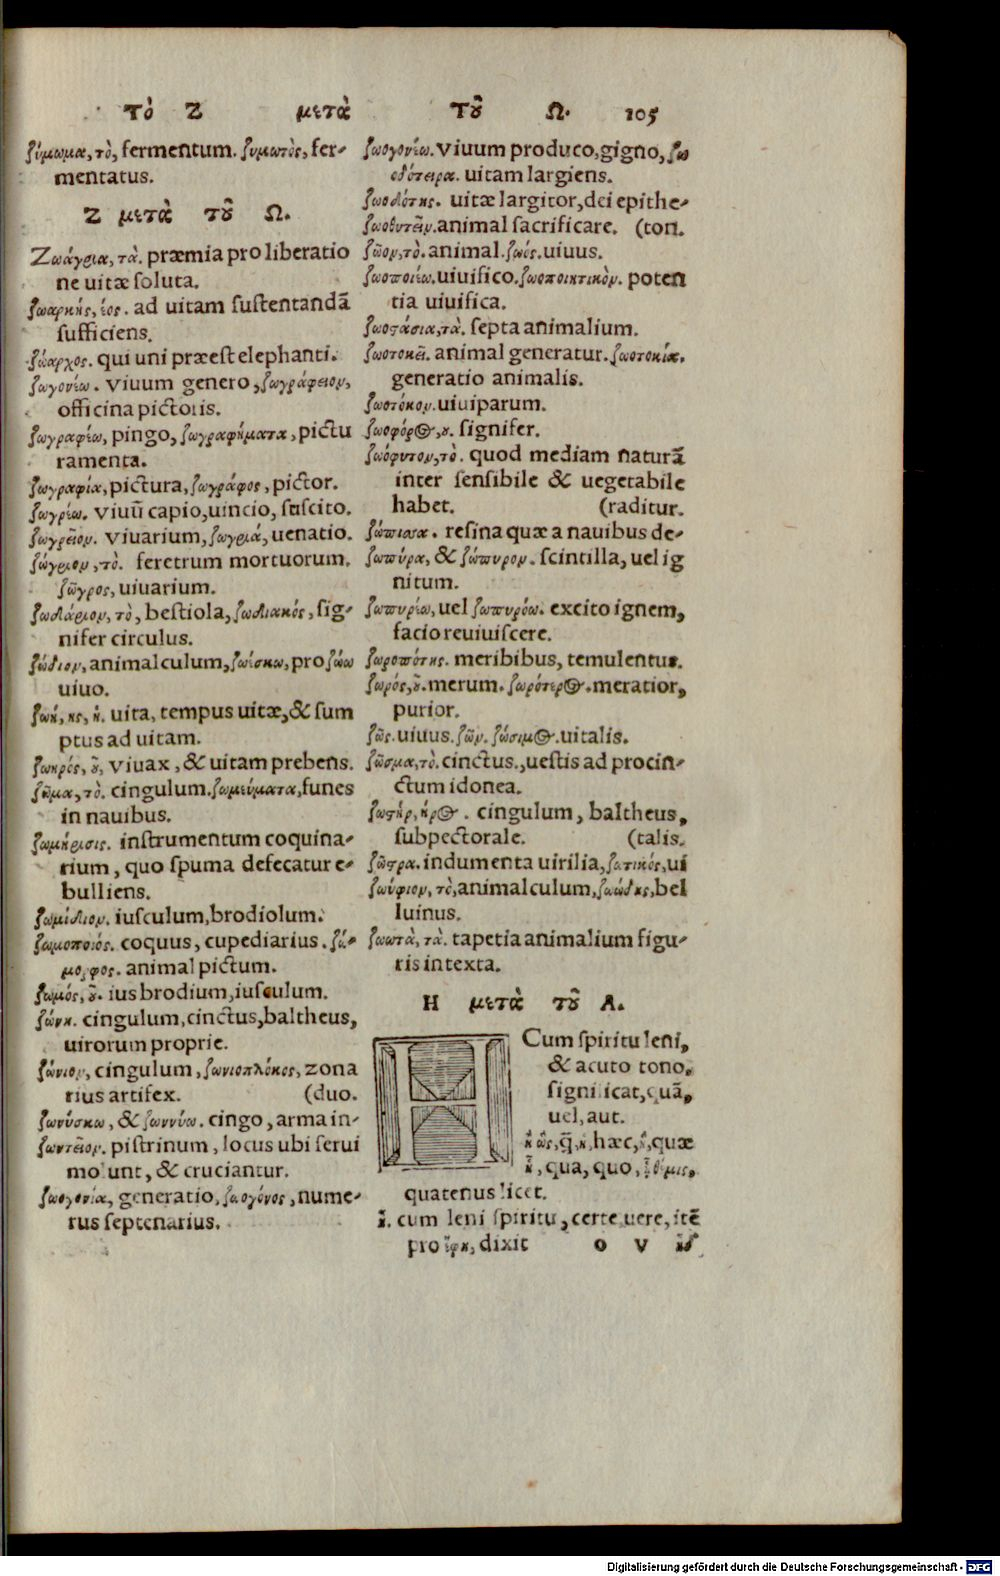 τὸ Ζ μετὰ τοῦ Ω. 105
ζύμωμα, τὸ, fermentum. ζυμωτὸς, fer-
mentatus.
Ζ μετὰ τοῦ Ω.
Ζωάγρια, τὰ. præmia pro liberatio
ne uitæ soluta.
ζωαρκὴς, έος. ad uitam sustentandā
sufficiens.
ζώαρχος. qui uni præest elephanti.
ζωγονέω. viuum genero, ζωγράφειον,
officina pictoris.
ζωγραφέω, pingo, ζωγραφήματα, pictu
ramenta.
ζωγραφία, pictura, ζωγράφος, pictor.
ζωγρέω. viuū capio, uincio, suscito.
ζωγρεῖον. vivarium, ζωγριά, uenatio.
ζώγριον, τὸ. feretrum mortuorum.
ζῶγρος, uiuarium.
ζωδάριον, τὸ, bestiola, ζωδιακός, sig-
nifer circulus.
ζώδιον, animalculum, ζωίσκω, pro ζώω
uiuo.
ζωή, ῆς, ἡ. uita, tempus uitæ, & sum
ptus ad uitam.
ζωηρός, οῦ, viuax, & uitam prebens.
ζῶμα, τὸ. cingulum. ζωμεύματα, funes
in nauibus.
ζωμήρισις. instrumentum coquina-
rium, quo spuma defecatur e-
bulliens.
ζωμίδιον. iusculum, brodiolum.
ζωμοποιός. coquus, cupediarius. ζώ-
μορφος. animal pictum.
ζωμός, οῦ. ius brodium, iusculum.
ζώνη. cingulum, cinctus, baltheus,
uirorum proprie.
ζώνιον, cingulum, ζωνιοπλόκος, zona
rius artifex. (duo.
ζωνύσκω, & ζωννύω. cingo, arma in-
ζωντεῖον. pistrinum, locus ubi serui
molunt, & cruciantur.
ζωογονία, generatio, ζωογόνος, nume-
rus septenarius.
ζωογονέω. viuum produco, gigno, ζω
οδότειρα. uitam largiens.
ζωοδότης. uitæ largitor, dei epithe-
ζωοθυτεῖν. animal sacrificare. (ton.
ζῶον, τὸ. animal. ζωός. uiuus.
ζωοποιέω. uiuifico. ζωοποιητικὸν. poten
tia uiuifica.
ζωοστάσια, τὰ. septa animalium.
ζωοτοκεῖ. animal generatur. ζωοτοκία.
generatio animalis.
ζωοτόκον. uiuiparum.
ζωοφόρος, ου. signifer.
ζωόφυτον, τὸ. quod mediam naturā
inter sensibile & uegetabile
habet. (raditur.
ζώπισσα. resina quæ a nauibus de-
ζωπύρα, & ζώπυρον. scintilla, uel ig
nitum.
ζωπυρέω, uel ζωπυρόω. excito ignem,
facio reuiuiscere.
ζωροπότης. meribibus, temulentus.
ζωρός, οῦ. merum. ζωρότερος. meratior,
purior.
ζῶς. uiuus. ζῶν. ζώσιμος. uitalis.
ζῶσμα, τὸ. cinctus., uestis ad procin-
ctum idonea.
ζωστήρ, ῆρος. cingulum, baltheus,
subpectorale. (talis.
ζῶστρα. indumenta uirilia, ζωτικός, ui
ζωύφιον, τὸ, animalculum, ζωώδης, bel
luinus.
ζωωτὰ, τὰ. tapetia animalium figu-
ris intexta.
Η μετὰ τοῦ Α.
H Cum spiritu leni,
& acuto tono,
significat, quā,
uel, aut.
hæc, quæ
qua, quo, θέμις,
quatenus licet.
ἦ. cum leni spiritu, certe uere, itē
pro ἔφη, dixit o v
Digitalisierung gefördert durch die Deutsche Forschungsgemeinschaft - DFG